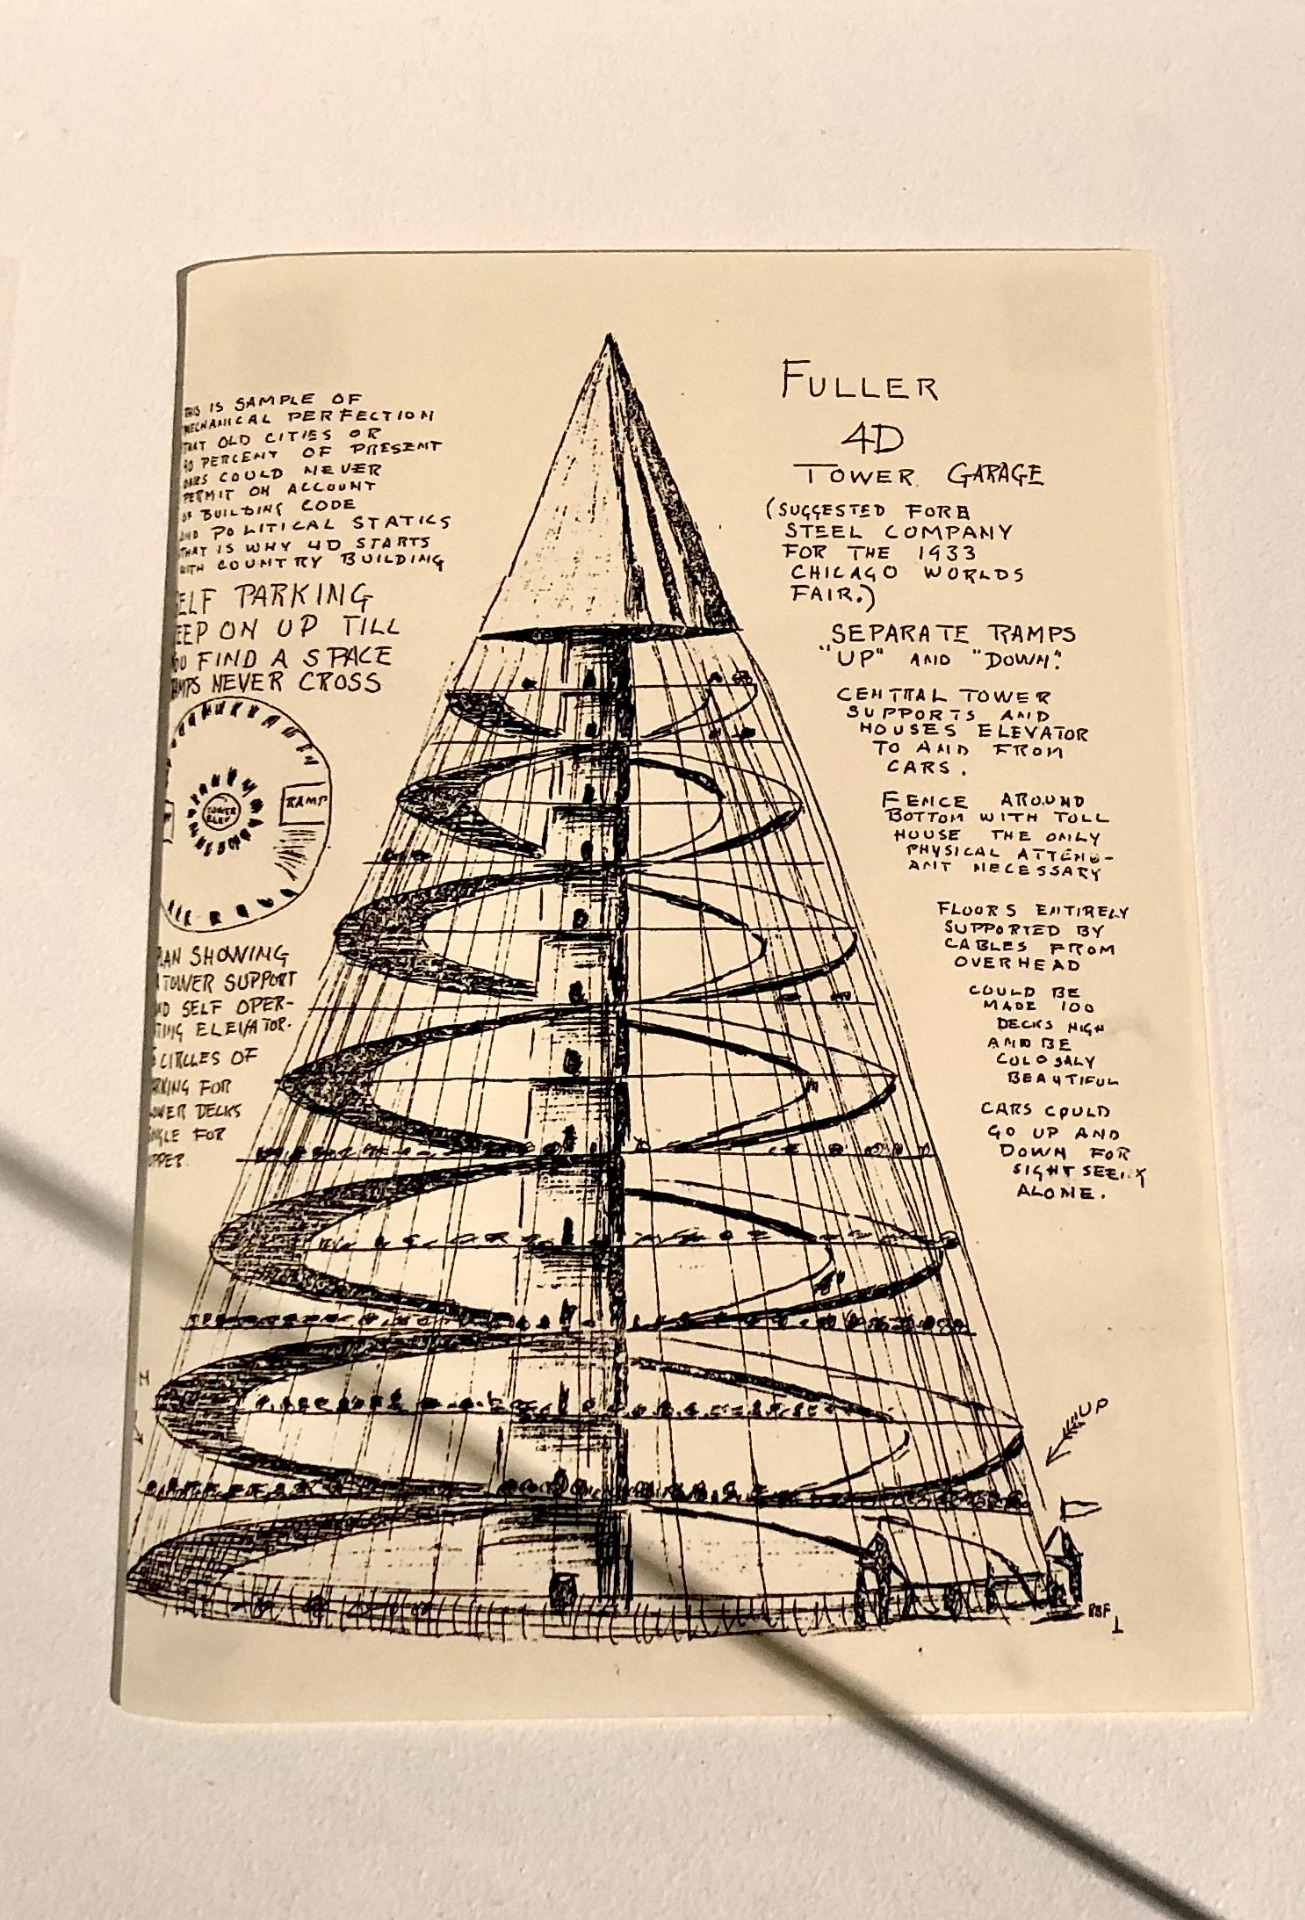 THIS IS SAMPLE OF
MECHANICAL PERFECTION
THAT OLD CITIES OR
90 PERCENT OF PRESENT
ONES COULD NEVER
PERMIT ON ACCOUNT
OF BUILDING CODE
AND POLITICAL STATICS
THAT IS WHY 4D STARTS
WITH COUNTRY BUILDING
ELF PARKING
EEP ON UP TILL
OU FIND A SPACE
AMPS NEVER CROSS
TOWER
ELEV
RAMP
LAN SHOWING
TOWER SUPPORT
ND SELF OPER-
TING ELEVATOR.
CIRCLES OF
RKING FOR
OWER DECKS
NGLE FOR
UPPER
N
FULLER
4D
TOWER GARAGE
(SUGGESTED FOR A
STEEL COMPANY
FOR THE 1933
CHICAGO WORLDS
FAIR.)
"SEPARATE RAMPS
"UP" AND "DOWN."
CENTRAL TOWER
SUPPORTS AND
HOUSES ELEVATOR
TO AND FROM
CARS.
FENCE AROUND
BOTTOM WITH TOLL
HOUSE THE ONLY
PHYSICAL ATTEND-
ANT NECESSARY
FLOORS ENTIRELY
SUPPORTED BY
CABLES FROM
OVERHEAD
COULD BE
MADE 100
DECKS HIGH
AND BE
COLOSALY
BEAUTIFUL
CARS COULD
GO UP AND
DOWN FOR
SIGHT SEEING
ALONE.
UP
RBF